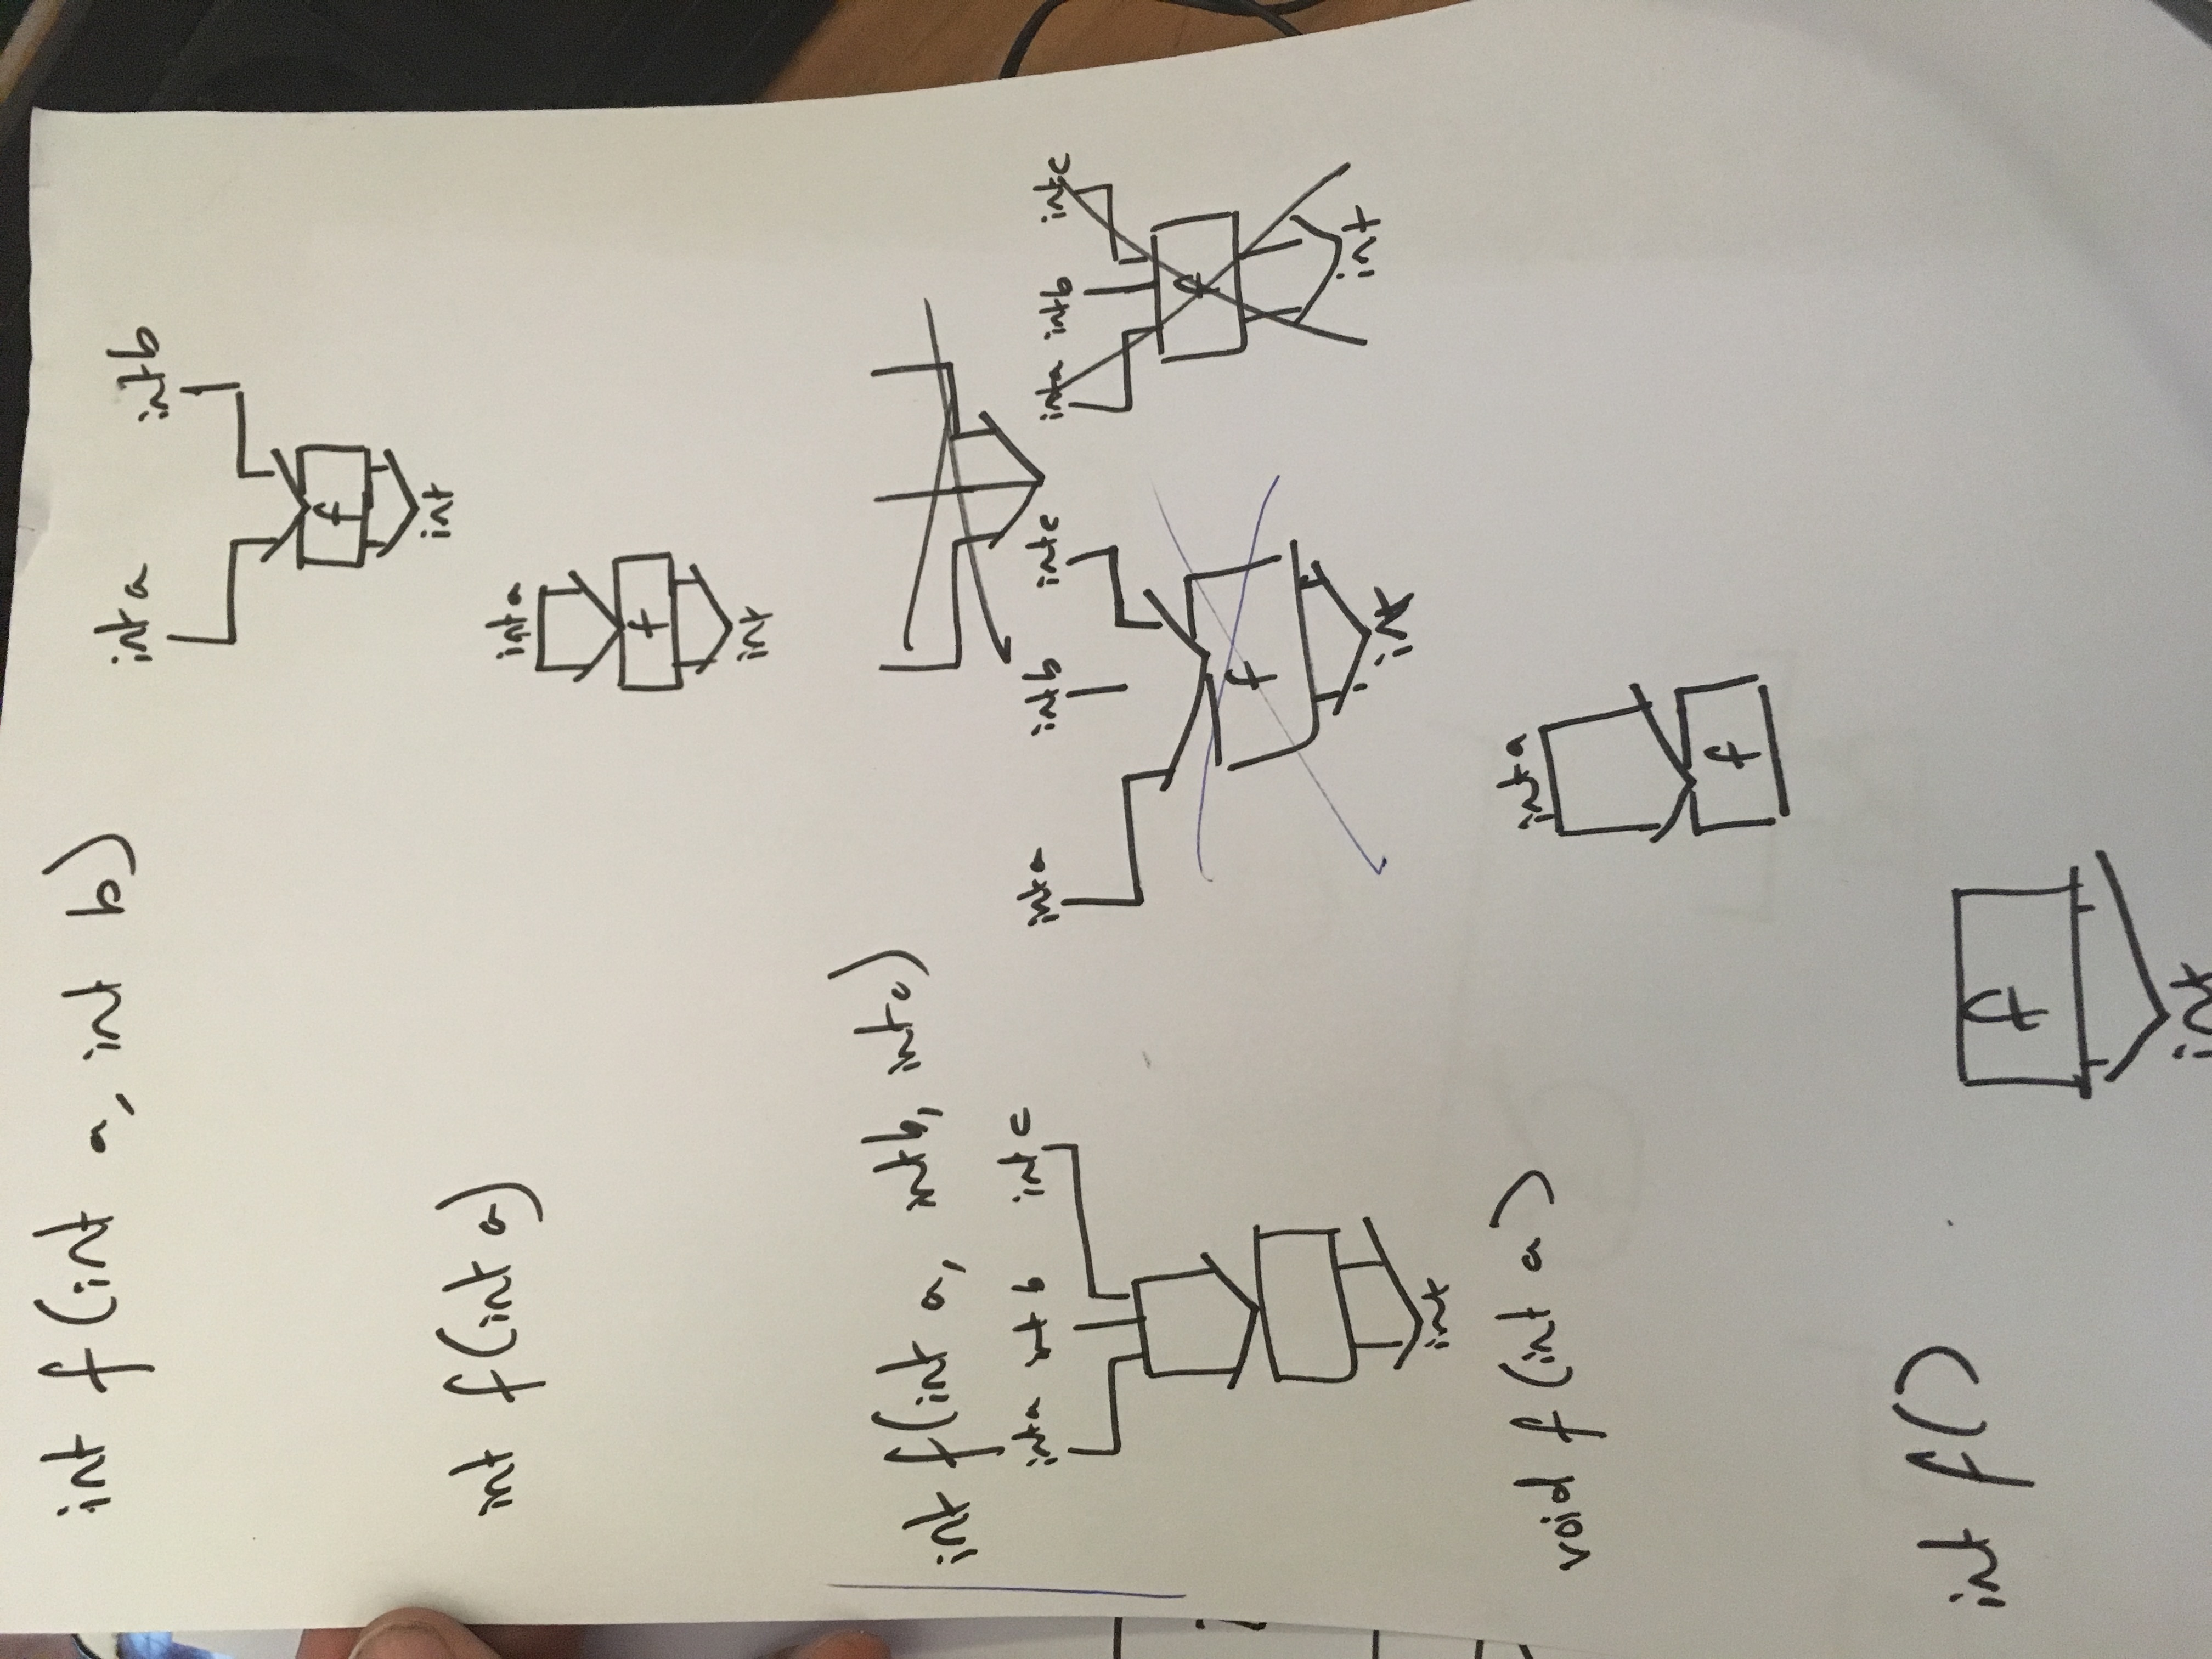 int f(int a, int b)
int a
int b
f
int
int f(int a)
int a
f
int
int f(int a, int b, int c)
int a int b int c
int
int a int b int c
f
int
int a int b int c
f
int
void f(int a)
int a
f
int f()
f
int